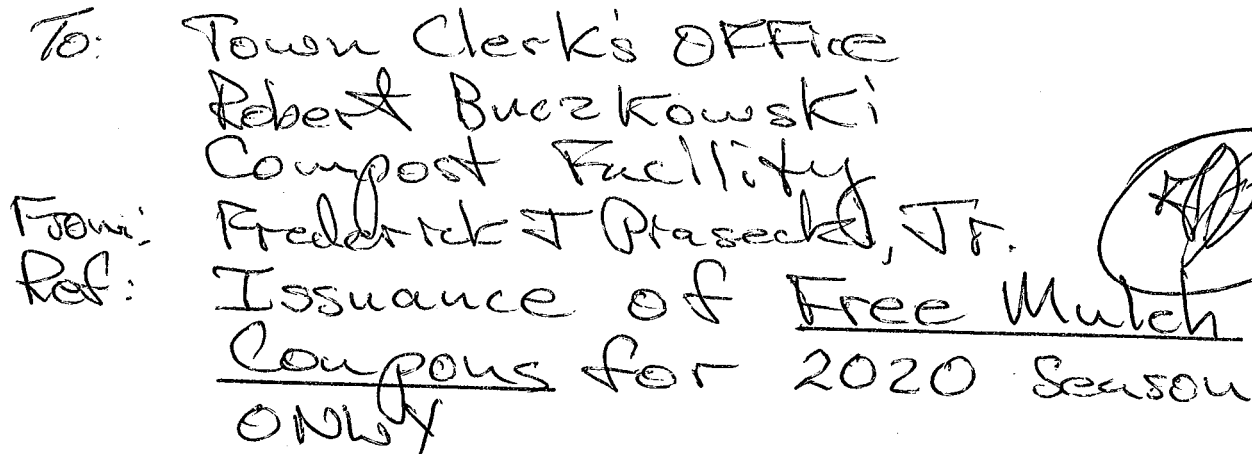 To: Town Clerk's Office
Robert Buczkowski
Compost Facllity
From: Frederick J Piasecki, Jr.
Ref: Issuance of Free Mulch
Coupons for 2020 Season
ONLY